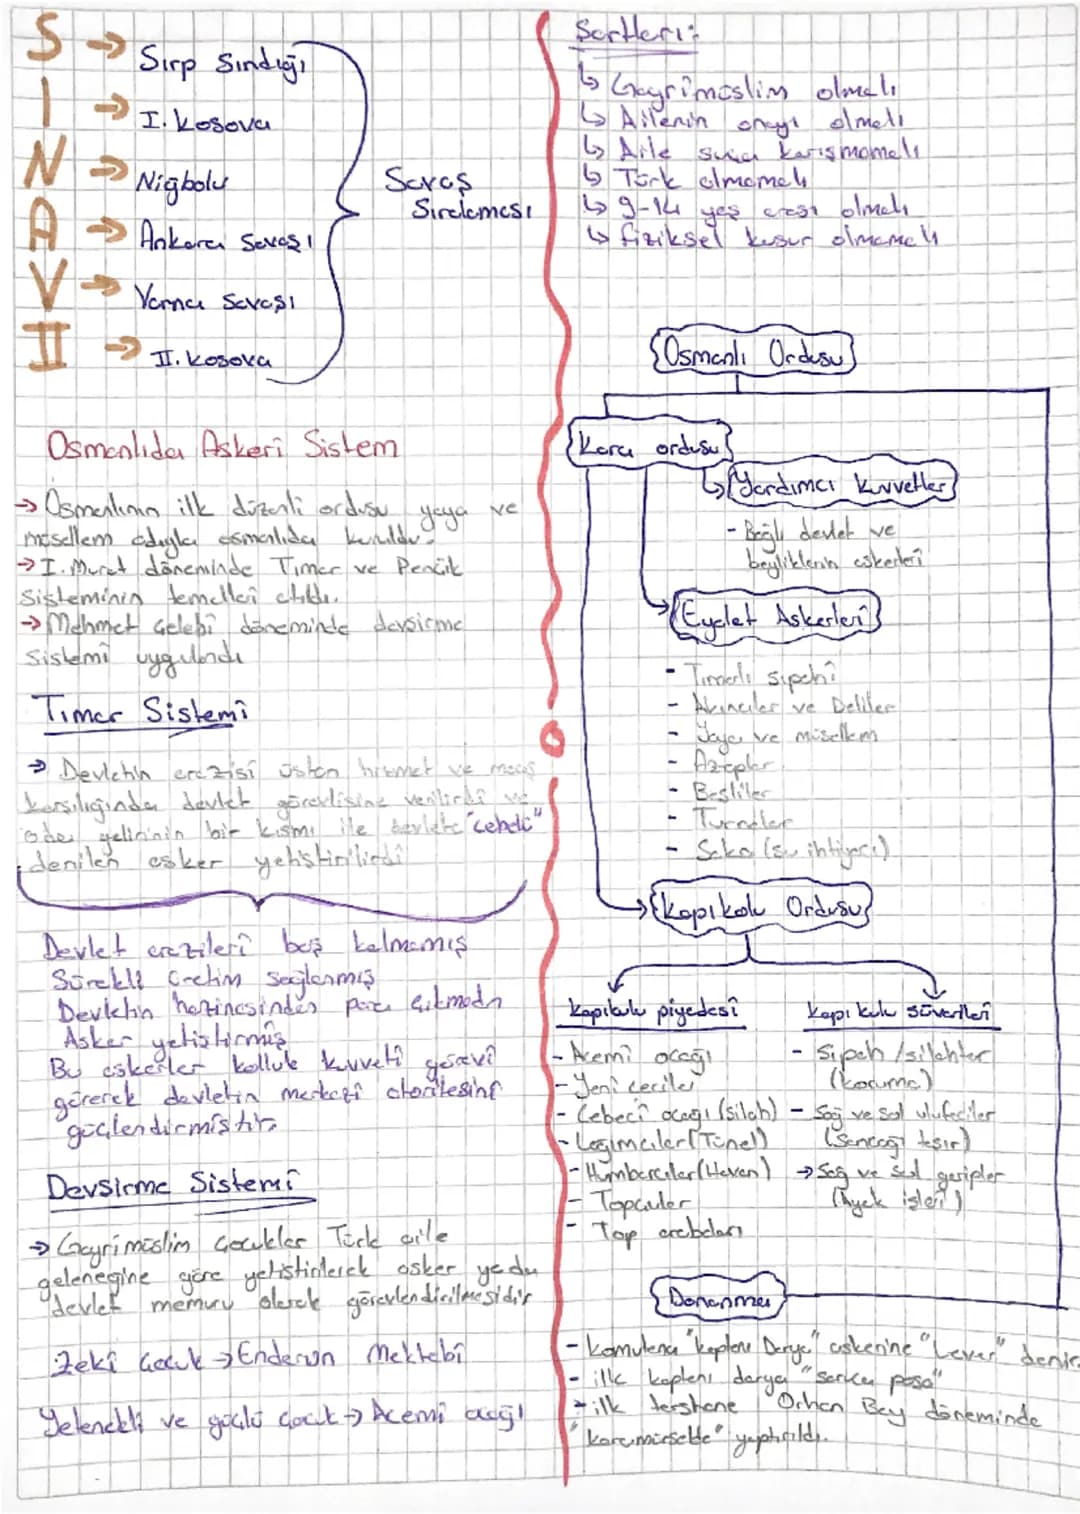 S → Sırp Sındığı
I → I. Kosova
N → Niğbolu
A → Ankara Savaşı
V → Varna Savaşı
II → II. Kosova
Savaş
Sıralaması
Osmanlıda Askeri Sistem
→ Osmanlının ilk düzenli ordusu yaya ve
müsellem adıyla osmanlıda kuruldu.
→ I. Murat döneminde Tımar ve Pencik
Sisteminin temelleri atıldı.
→ Mehmet Çelebi döneminde devşirme
sistemi uygulandı
Tımar Sistemi
→ Devletin arazisi üstün hizmet ve maaş
karşılığında devlet görevlisine verilirdi ve
o da gelirinin bir kısmı ile devlete "cebelü"
denilen asker yetiştirilirdi
Devlet arazileri boş kalmamış
Sürekli üretim sağlanmış
Devletin hazinesinden para çıkmadan
Asker yetiştirmiş
Bu askerler kolluk kuvveti görevi
görerek devletin merkezi otoritesini
güçlendirmiştir
Devşirme Sistemi
→ Gayrimüslim Çocuklar Türk aile
geleneğine göre yetiştirilerek asker ya da
devlet memuru olarak görevlendirilmesidir
Zeki Çocuk → Enderun Mektebi
Yetenekli ve güçlü çocuk → Acemi ocağı
Şartları:
↳ Gayrimüslim olmalı
↳ Ailenin onayı olmalı
↳ Aile suça karışmamalı
↳ Türk olmamalı
↳ 9-14 yaş arası olmalı
↳ fiziksel kusur olmamalı
Osmanlı Ordusu
Kara ordusu
↳ Yardımcı kuvvetler
- Bağlı devlet ve
beyliklerin askerleri
Eyalet Askerleri
- Tımarlı sipahi
- Akıncılar ve Deliler
- Yaya ve müsellem
- Azaplar
- Beşliler
- Turnalar
- Saka (su ihtiyacı)
Kapıkulu Ordusu
Kapıkulu piyadesi
- Acemi ocağı
- Yeni çeriler
- Cebeci ocağı (silah)
- Lağımcılar (Tünel)
- Humbaracılar (Havan)
- Topçular
- Top arabaları
Kapı kulu süvarileri
- Sipah / silahtar
(koruma)
- Sağ ve sol ulufeciler
(Sancağı taşır)
→ Sağ ve sol garipler
(Ayak işleri)
Donanma
- komutana "kaptanı Derya" askerine "Levent" denir.
- ilk kaptanı derya "saruca paşa"
- ilk tershane Orhan Bey döneminde
"karamürselde" yaptırıldı.